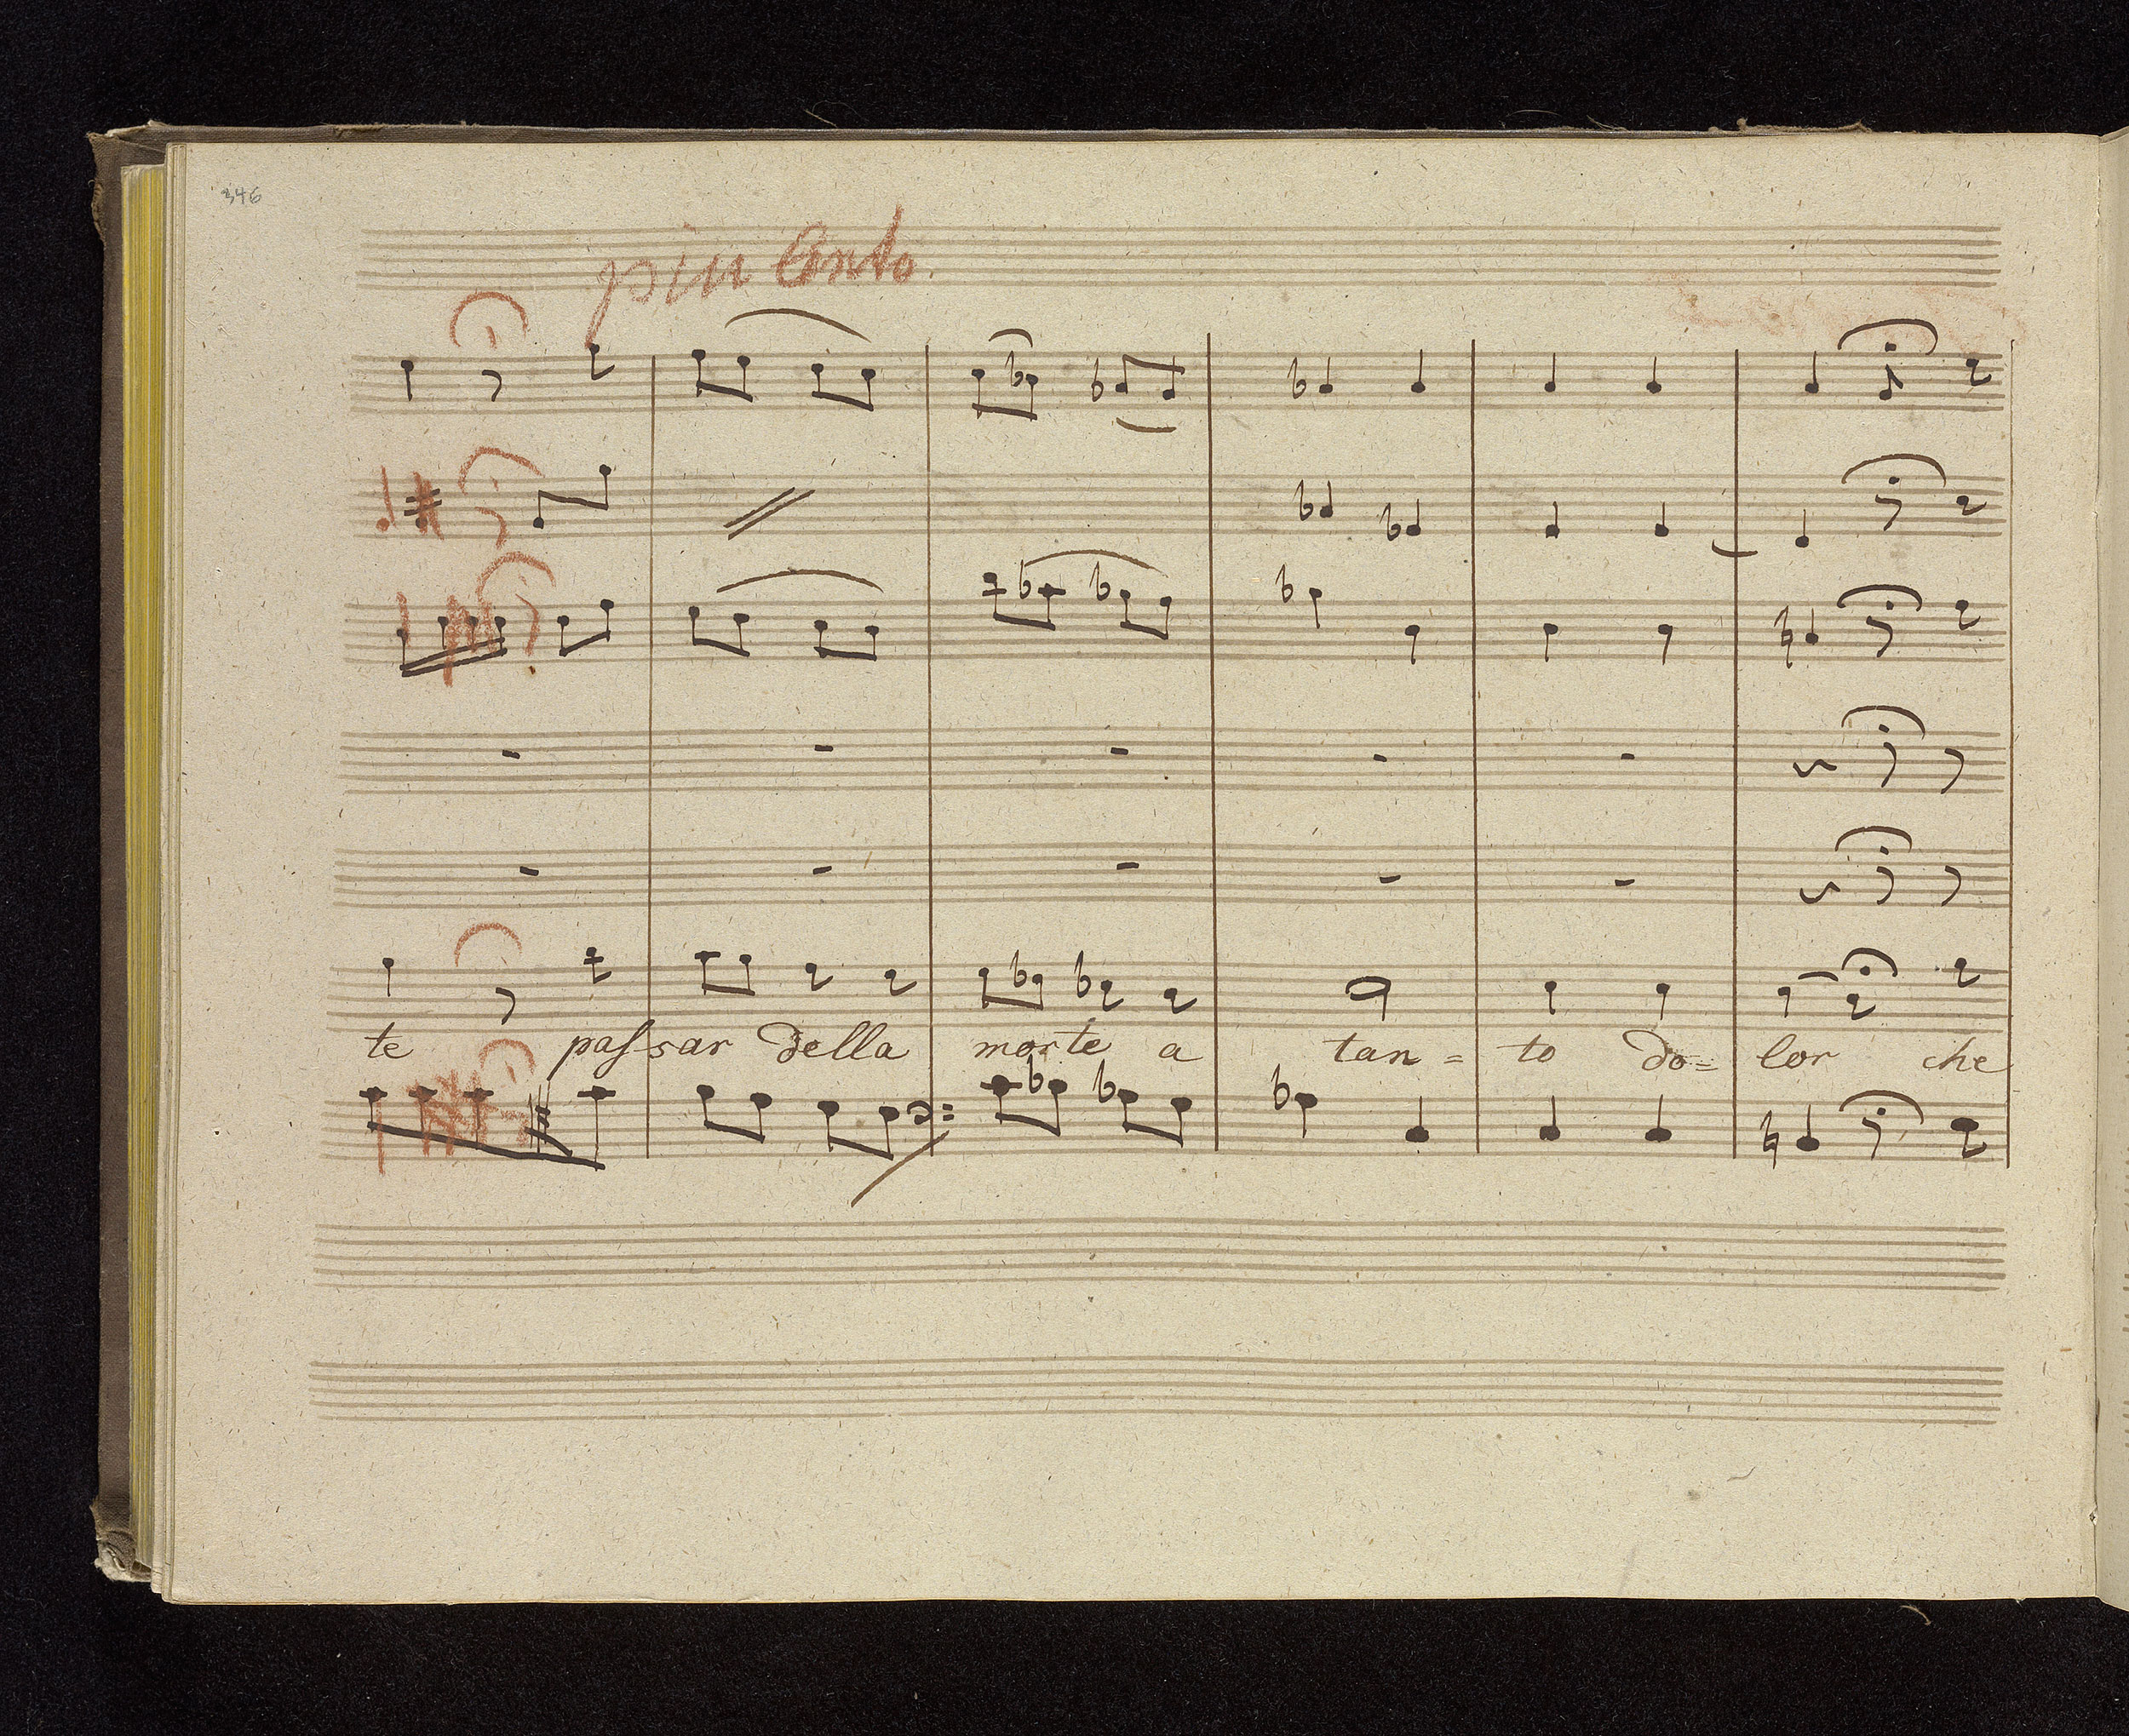 346
piu lento.
te passar della morte a tan = to do = lor che